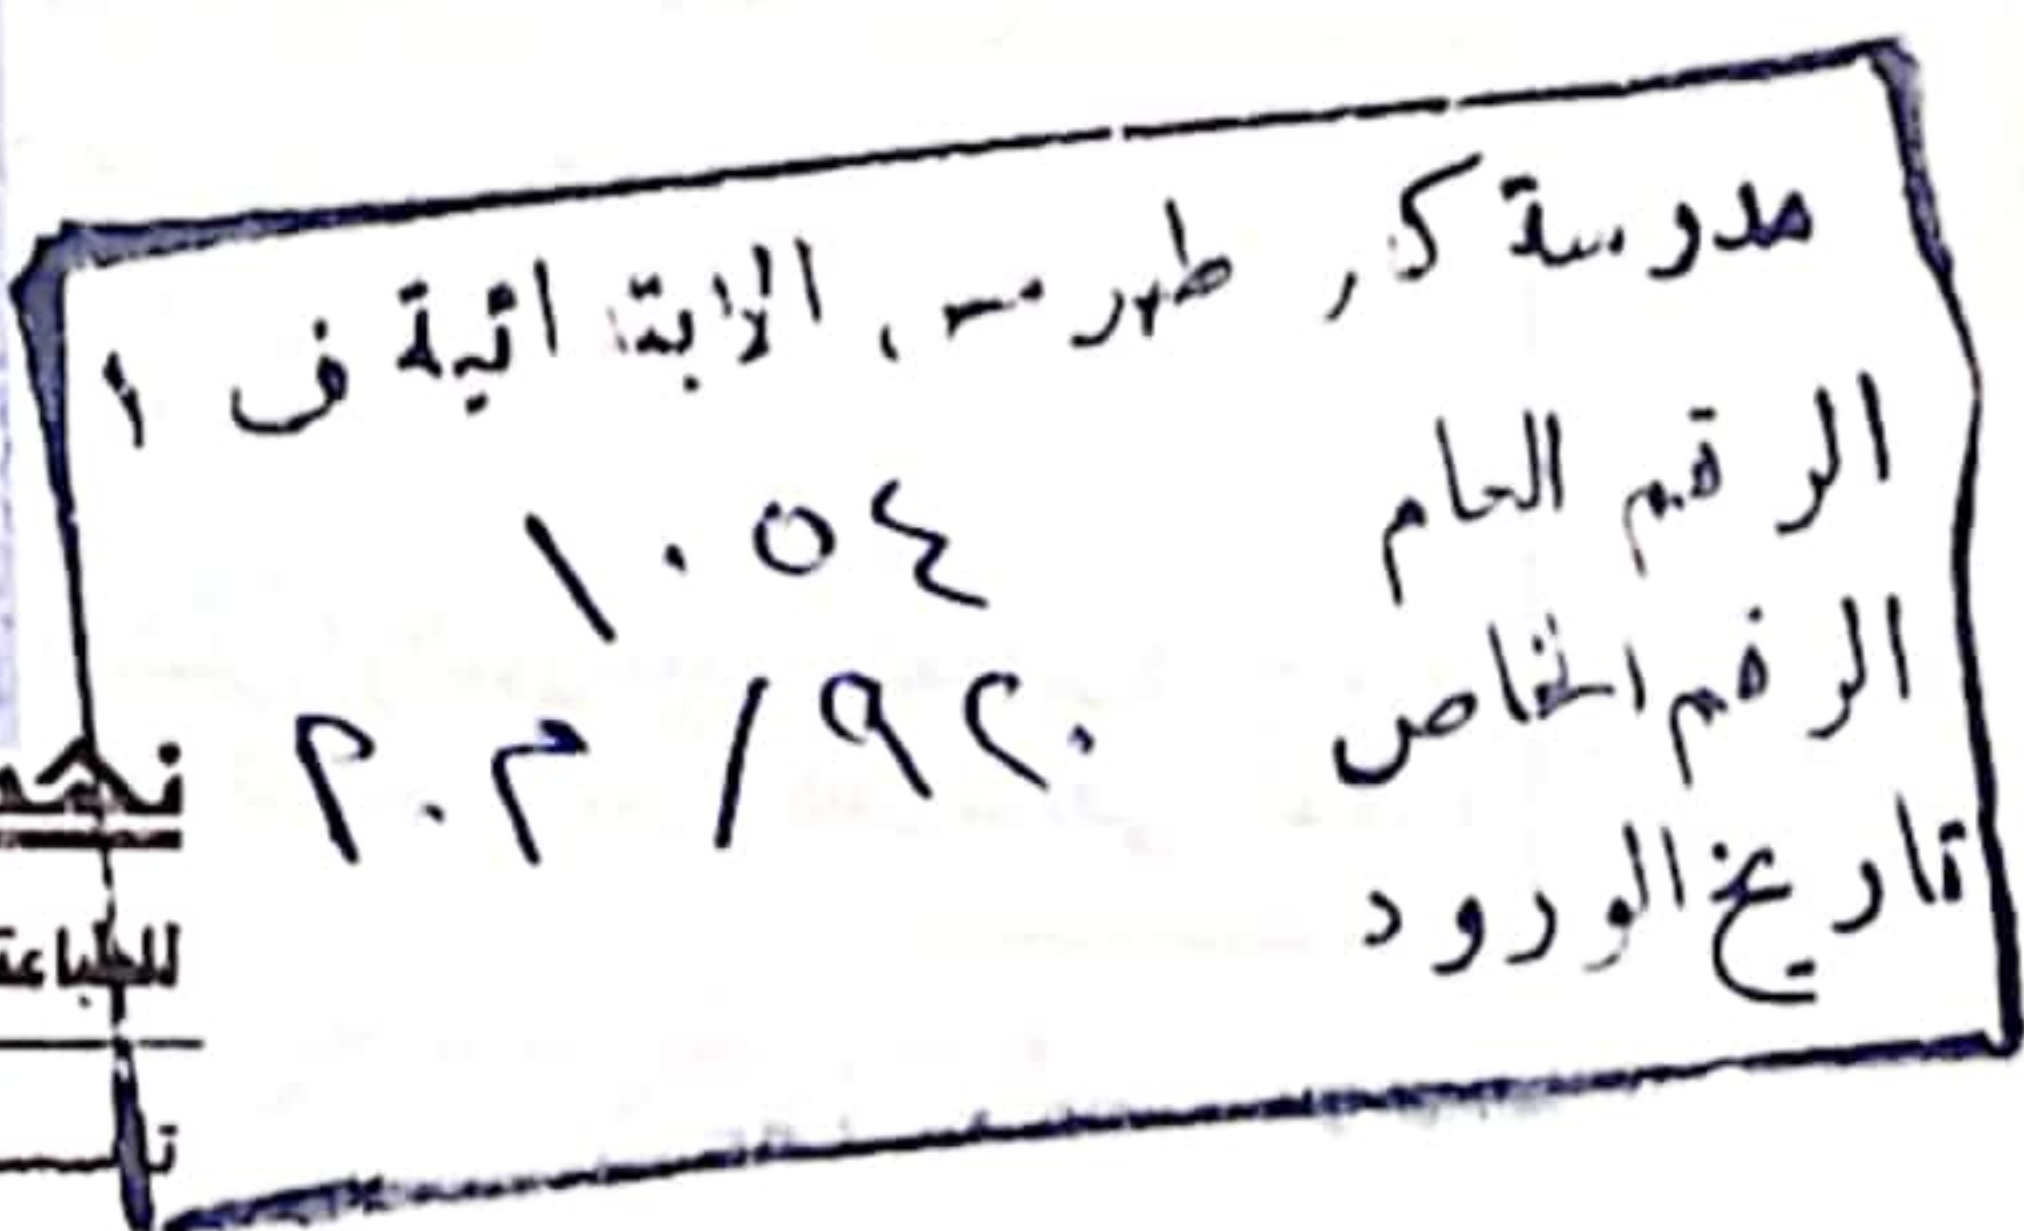 مدرسة كفر طهرمس الابتدائية ف ١
الرقم العام ١٠٥٤
الرقم الخاص
تاريخ الورود
للطباعة